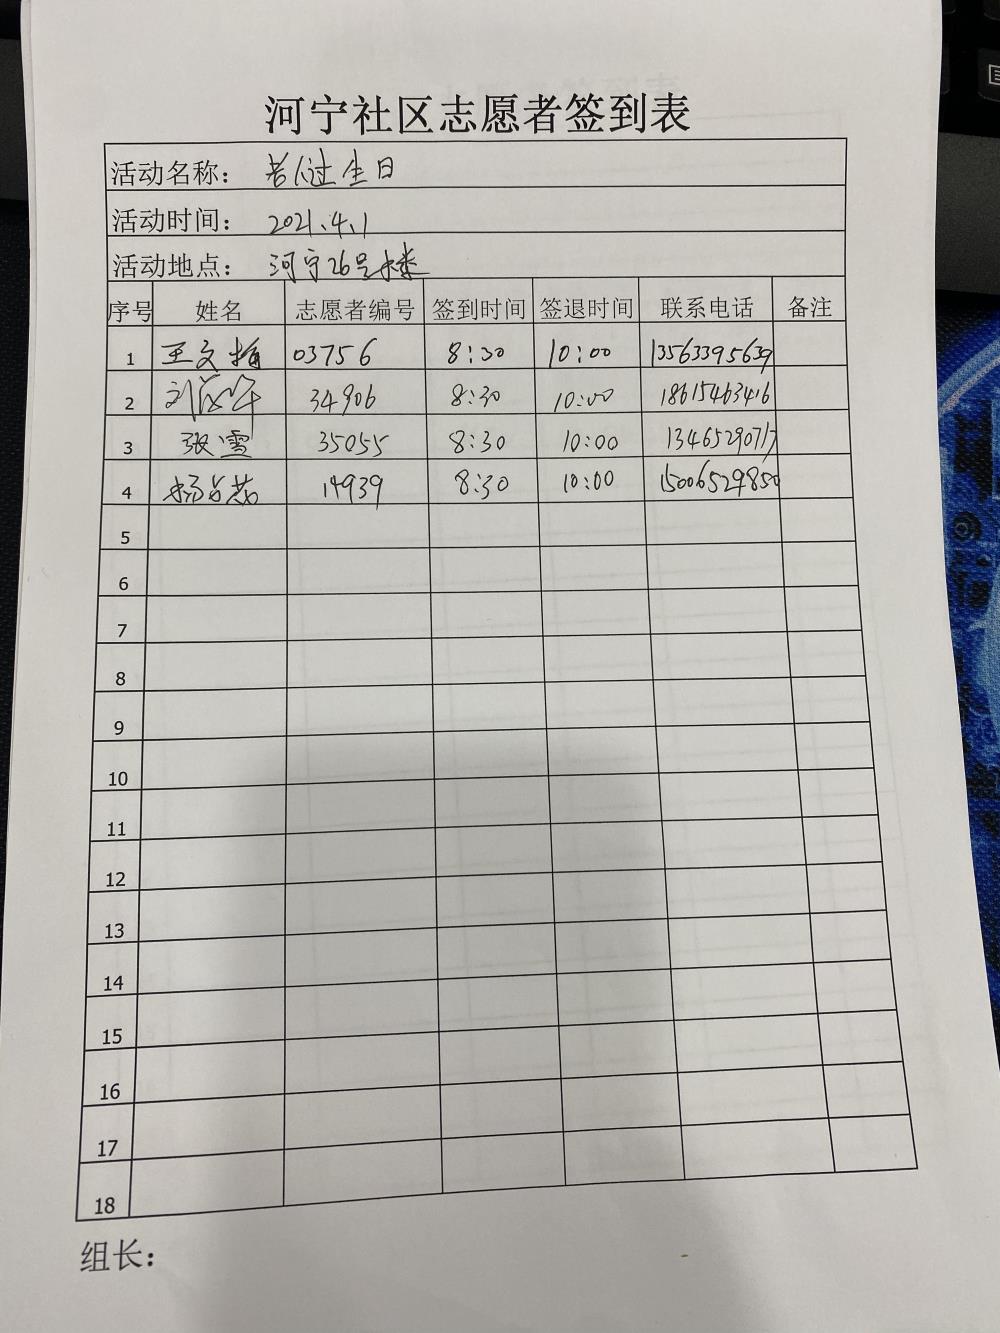 河宁社区志愿者签到表
活动名称： 老人过生日
活动时间： 2021.4.1
活动地点： 河宁26号楼
序号 姓名 志愿者编号 签到时间 签退时间 联系电话 备注
1 王文梅 03756 8:30 10:00 13563395639
2 刘 34906 8:30 10:00 18615463416
3 张雪 35055 8:30 10:00 13465290717
4 杨 19939 8:30 10:00 15006529850
5
6
7
8
9
10
11
12
13
14
15
16
17
18
组长：